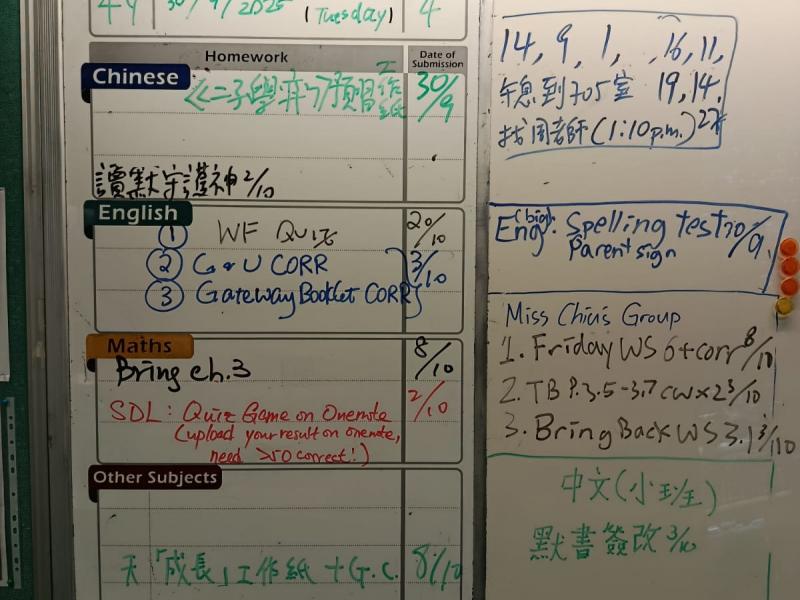 4Y 30/9/2025 (Tuesday) 4
Homework Date of Submission
Chinese
《二子學弈》預習工作紙 30/9
讀默守護神 2/10
English
① WF Quiz 20/10
② G&U CORR 3/10
③ Gateway Booklet CORR
Maths
Bring ch.3 8/10
SDL: Quiz Game on Onenote 2/10
(upload your result on onenote,
need >50 correct!)
Other Subjects
「成長」工作紙 + G.C. 8/10
14, 9, 1, 16, 11,
到705室 19, 14,
找周老師 (1:10p.m.) 27
Eng (big): Spelling test 30/9
Parent sign
Miss Chiu's Group
1. Friday WS 6 + corr 8/10
2. TB P.3.5-3.7 CW x2 3/10
3. Bring Back WS 3.1 3/10
中文(小班)
默書簽改 3/10